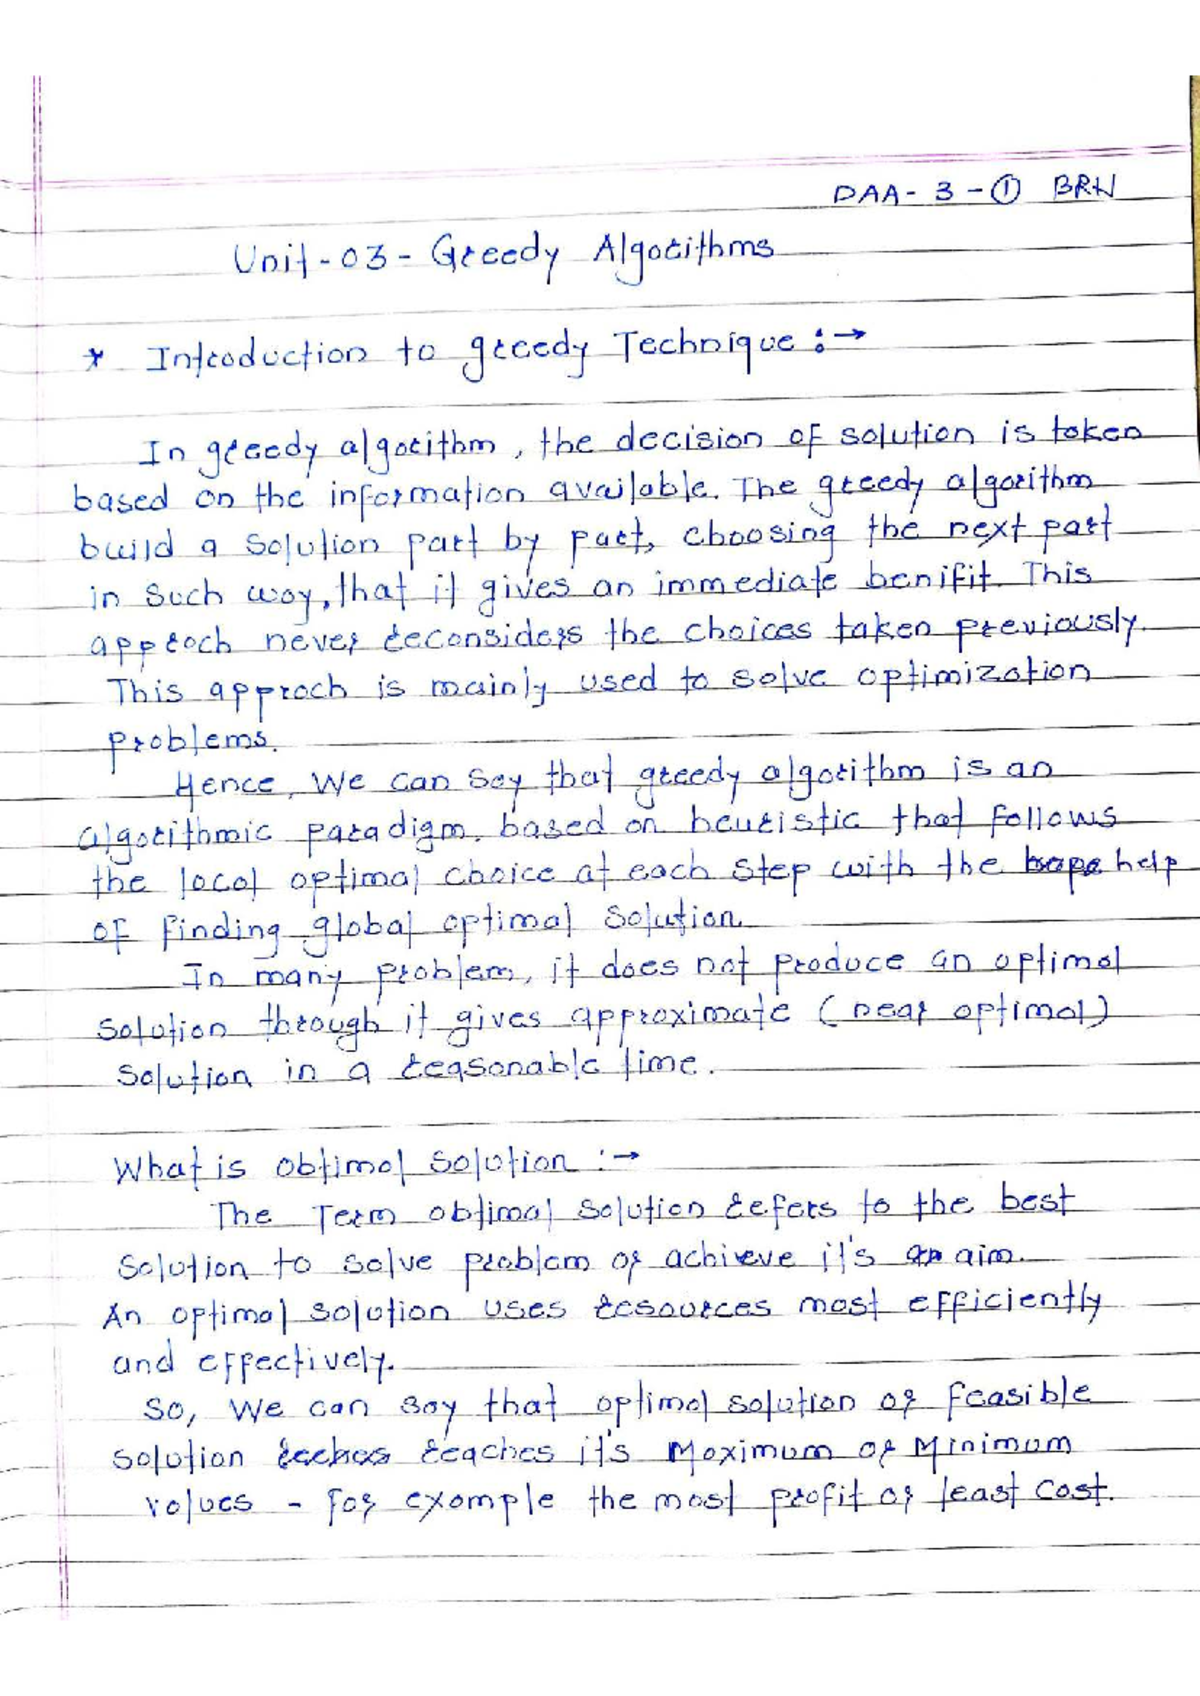 DAA - 3 - ① BRH
Unit - 03 - Greedy Algorithms
* Introduction to greedy Technique :→
In greedy algorithm, the decision of solution is taken
based on the information available. The greedy algorithm
build a solution part by part, choosing the next part
in such way, that it gives an immediate benifit. This
approch never reconsiders the choices taken previously.
This approch is mainly used to solve optimization
problems.
Hence, We can say that greedy algorithm is an
algorithmic paradigm, based on heuristic that follows
the local optimal choice at each step with the hope help
of finding global optimal solution.
In many problem, it does not produce an optimal
solution through it gives approximate (near optimal)
solution in a reasonable time.
What is obtimal solution :→
The Term obtimal solution refers to the best
solution to solve problem or achieve it's aim.
An optimal solution uses resources most efficiently
and effectively.
So, We can say that optimal solution or feasible
solution reaches it's Maximum or Minimum
values - for example the most profit or least cost.